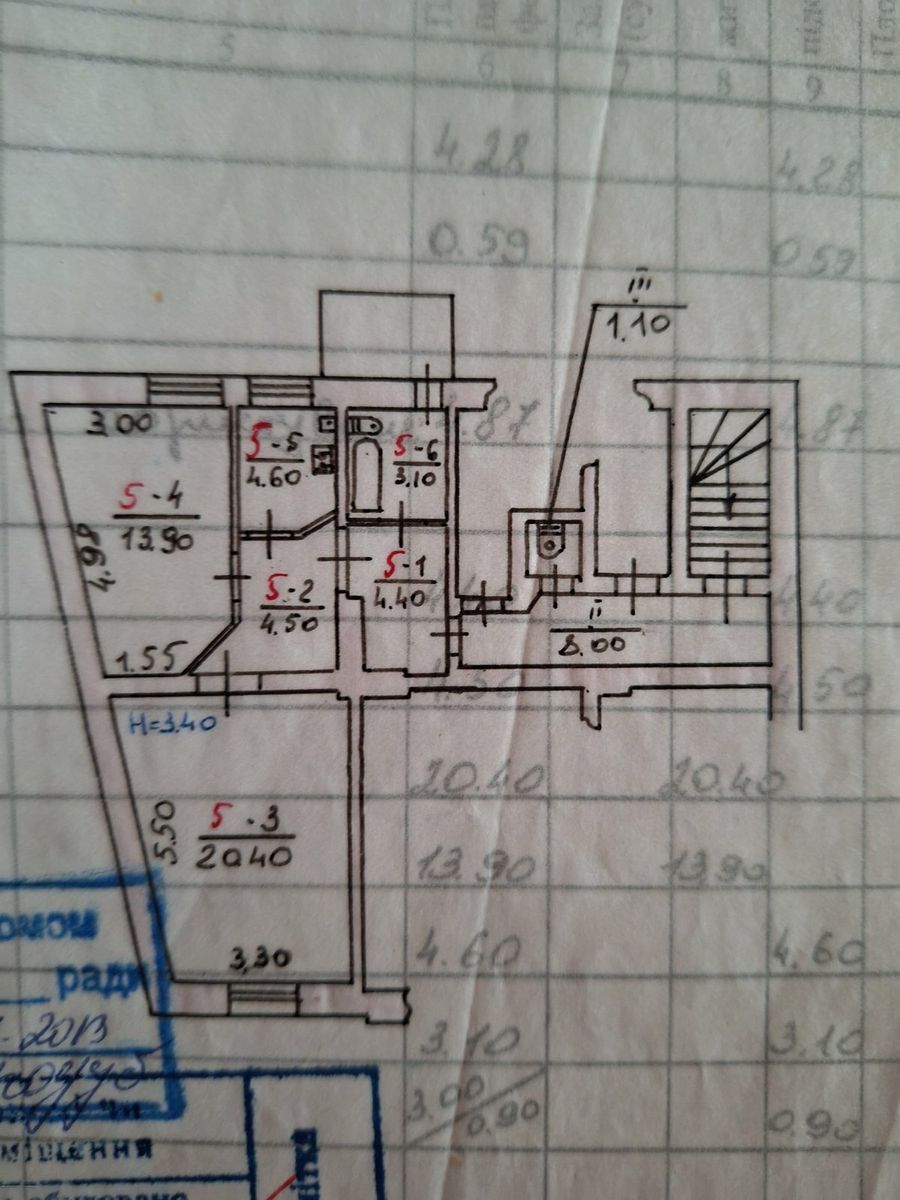 5
6
7
8
9
4.28
4.28
0.59
0.59
III
1.10
3.00
5-5
4.60
5-6
3.10
.87
4.87
5-4
13.90
4.98
5-2
4.50
5-1
4.40
4.40
II
8.00
1.55
4.50
H=3.40
20.40
20.40
5-3
20.40
5.50
13.90
13.90
3.30
4.60
4.60
омом
ради
2013
3.10
3.10
3.00
0.90
0.90
міщення